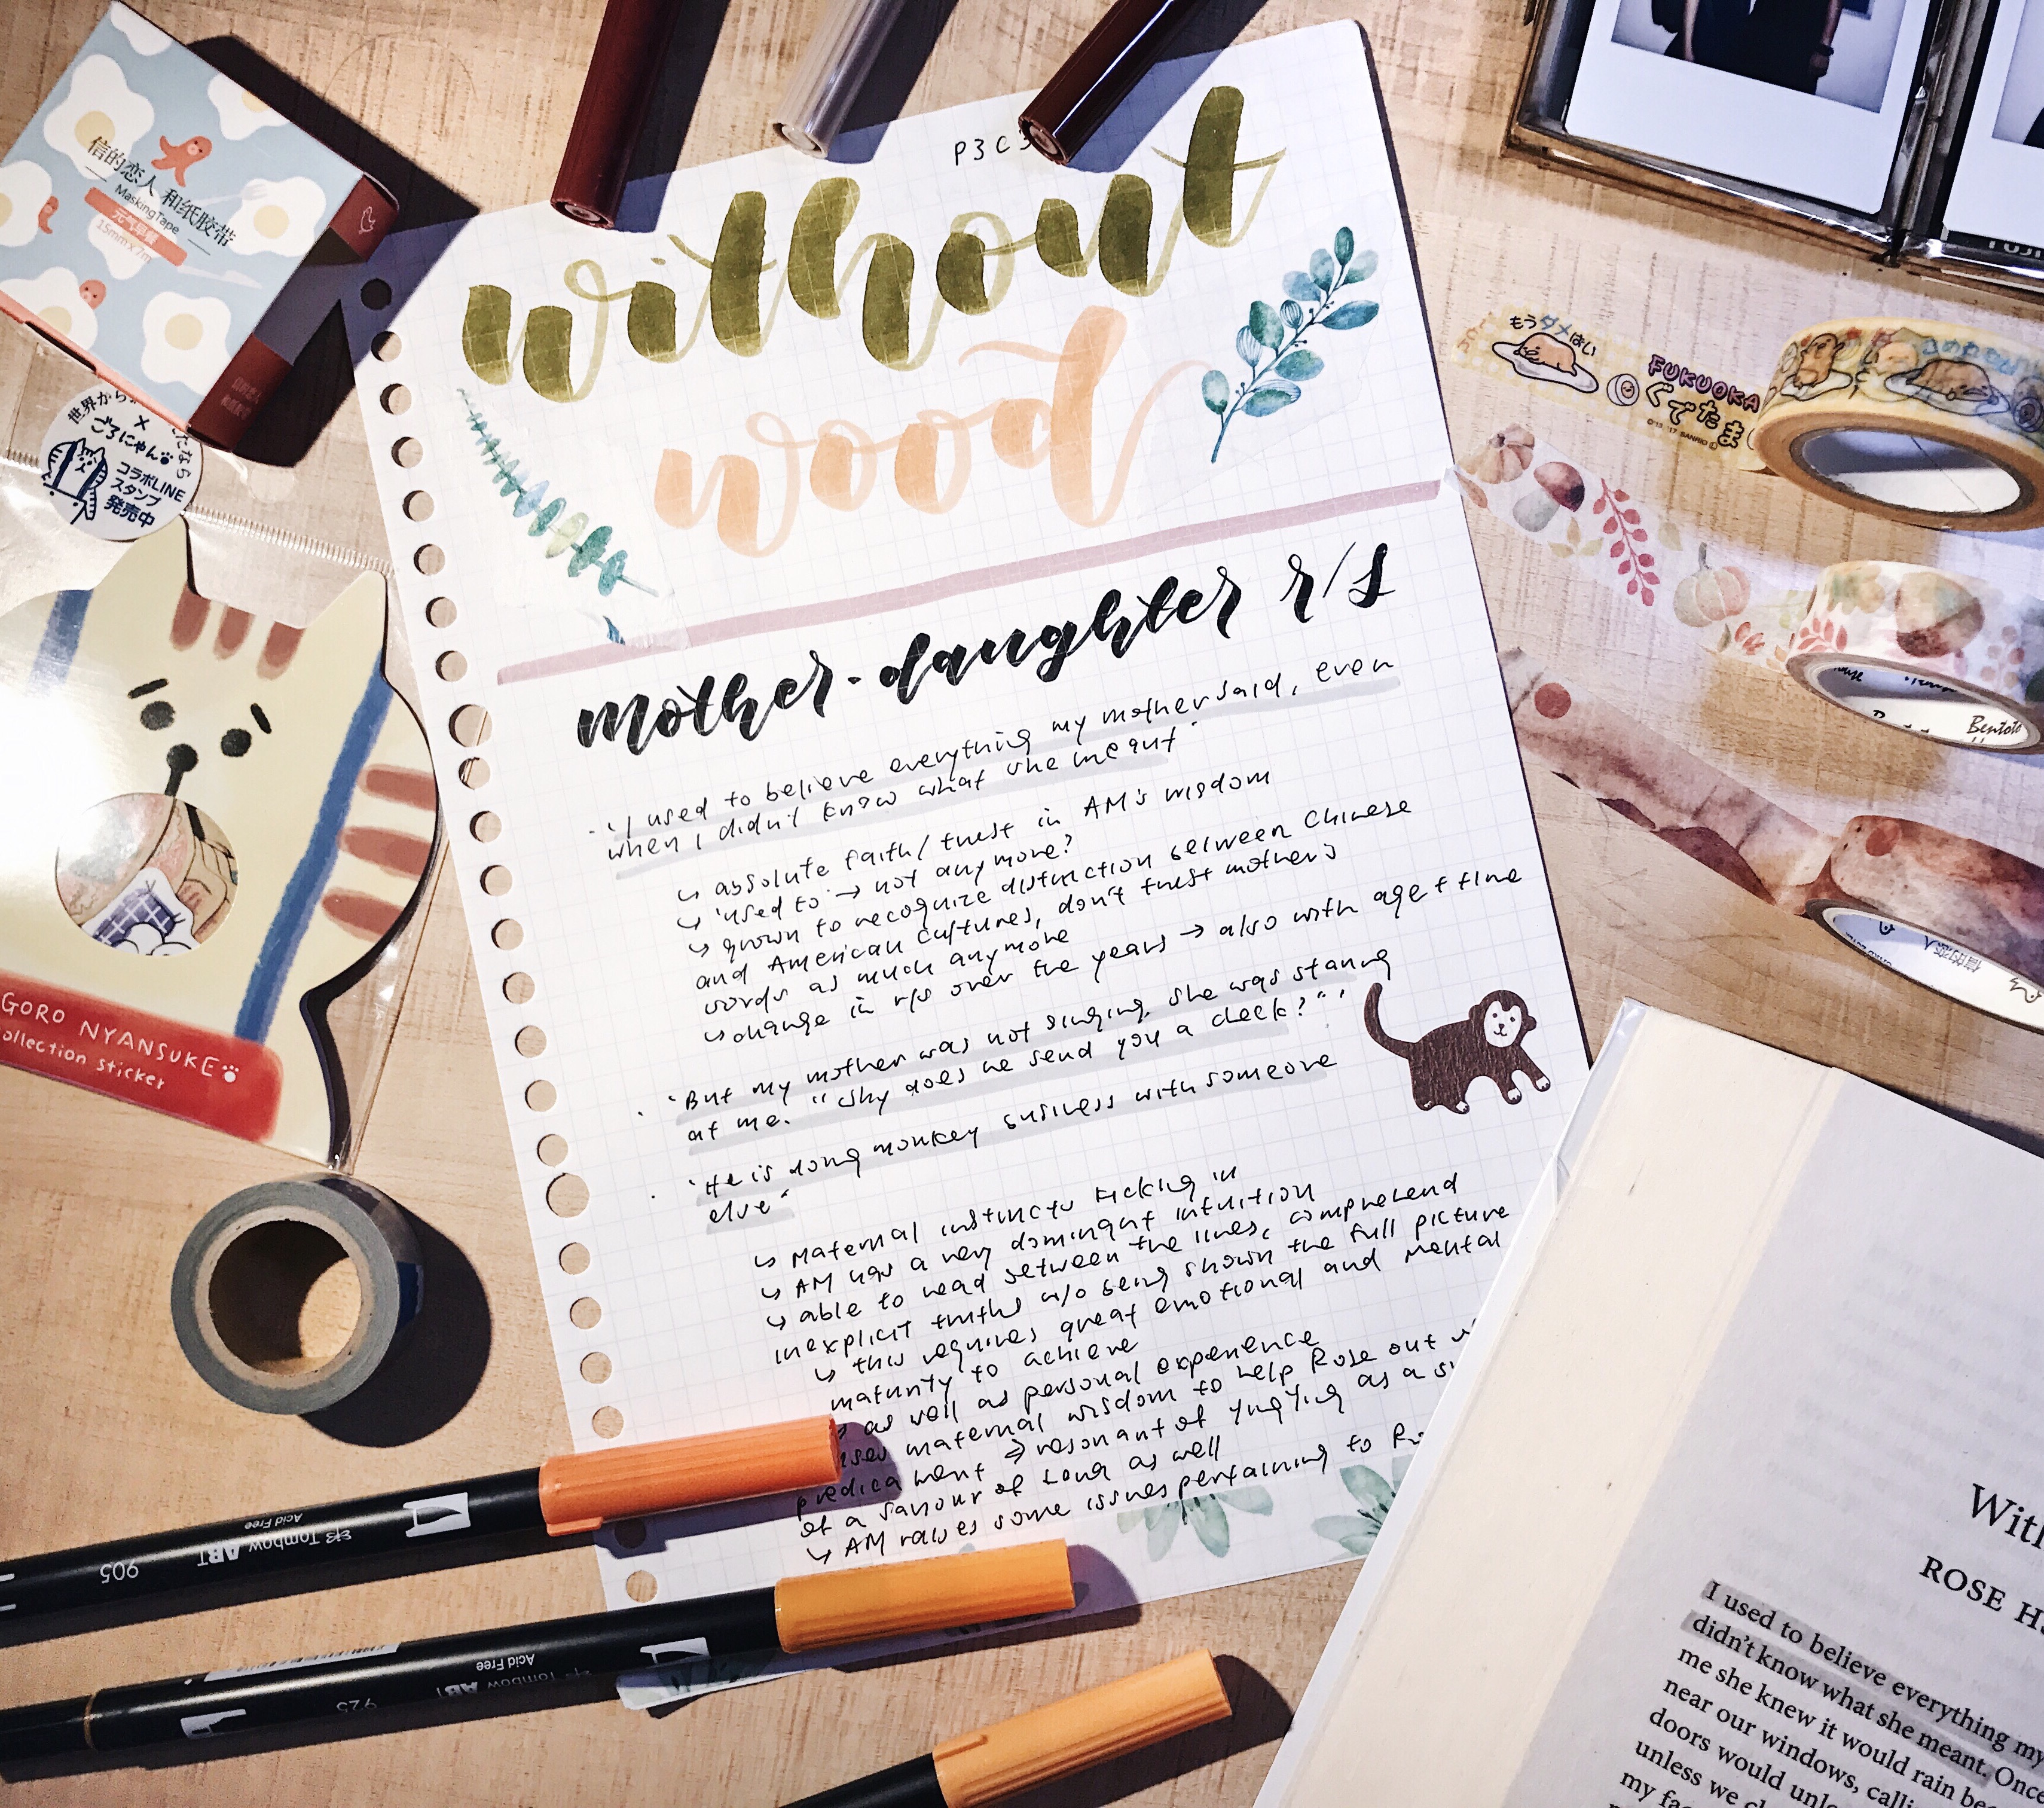 P3C
without
wood
mother-daughter r/s
"I used to believe everything my mother said, even
when I didn't know what she meant"
↳ absolute faith/trust in AM's wisdom
↳ 'used to' → not anymore?
↳ grown to recognize distinction between Chinese
and American cultures, don't trust mother's
words as much anymore
↳ change in r/s over the years → also with age + time
"But my mother was not singing, she was staring
at me. "Why does he send you a check?""
"He is doing monkey business with someone
else"
↳ Maternal instincts kicking in
↳ AM has a very dominant intuition
↳ able to read between the lines, comprehend
inexplicit truths w/o being shown the full picture
↳ this requires great emotional and mental
maturity to achieve
↳ as well as personal experience
uses maternal wisdom to help Rose out
predicament ⇒ resonant of YingYing as a
of a saviour of Lena as well
↳ AM raises some issues pertaining to
信的恋人 和纸胶带
MaskingTape
元气早餐
15mm x 7m
世界から
×
ごろにゃん
コラボLINE
スタンプ
発売中
GORO NYANSUKE
collection sticker
もうダメ はい
FUKUOKA
ぐでたま
SANRIO
Bentoto
905
Tombow ABT
Acid Free
925
Tombow ABT
Acid Free
ROSE
I used to believe everything my
didn't know what she meant. Once
me she knew it would rain
near our windows,
doors would
unless we
my